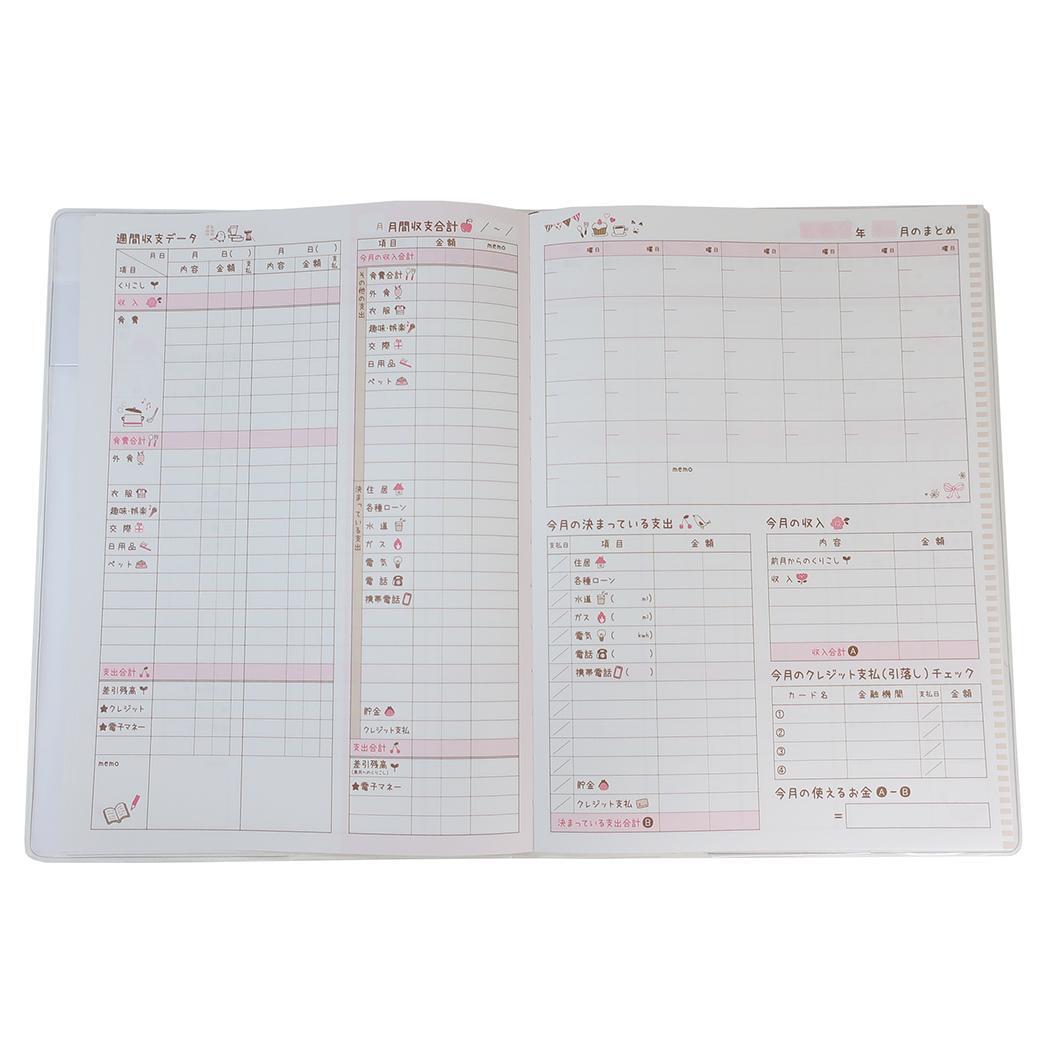 週間収支データ
月日
項目
月 日( )
月 日( )
内容 金額 支払
内容 金額 支払
くりこし
収入
食費
食費合計
外食
衣服
趣味・娯楽
交際
日用品
ペット
支出合計
差引残高
★クレジット
★電子マネー
memo
月 月間収支合計 /~/
項目 金額 memo
今月の収入合計
その他の支出
食費合計
外食
衣服
趣味・娯楽
交際
日用品
ペット
決まっている支出
住居
各種ローン
水道
ガス
電気
電話
携帯電話
貯金
クレジット支払
支出合計
差引残高
(翌月へのくりこし)
★電子マネー
年 月のまとめ
曜日 曜日 曜日 曜日 曜日 曜日 曜日
memo
今月の決まっている支出
支払日 項目 金額
住居
各種ローン
水道 ( m³)
ガス ( m³)
電気 ( kwh)
電話 ( )
携帯電話 ( )
貯金
クレジット支払
決まっている支出合計 B
今月の収入
内容 金額
前月からのくりこし
収入
収入合計 A
今月のクレジット支払(引落し)チェック
カード名 金融機関 支払日 金額
①
②
③
④
今月の使えるお金 A-B
=